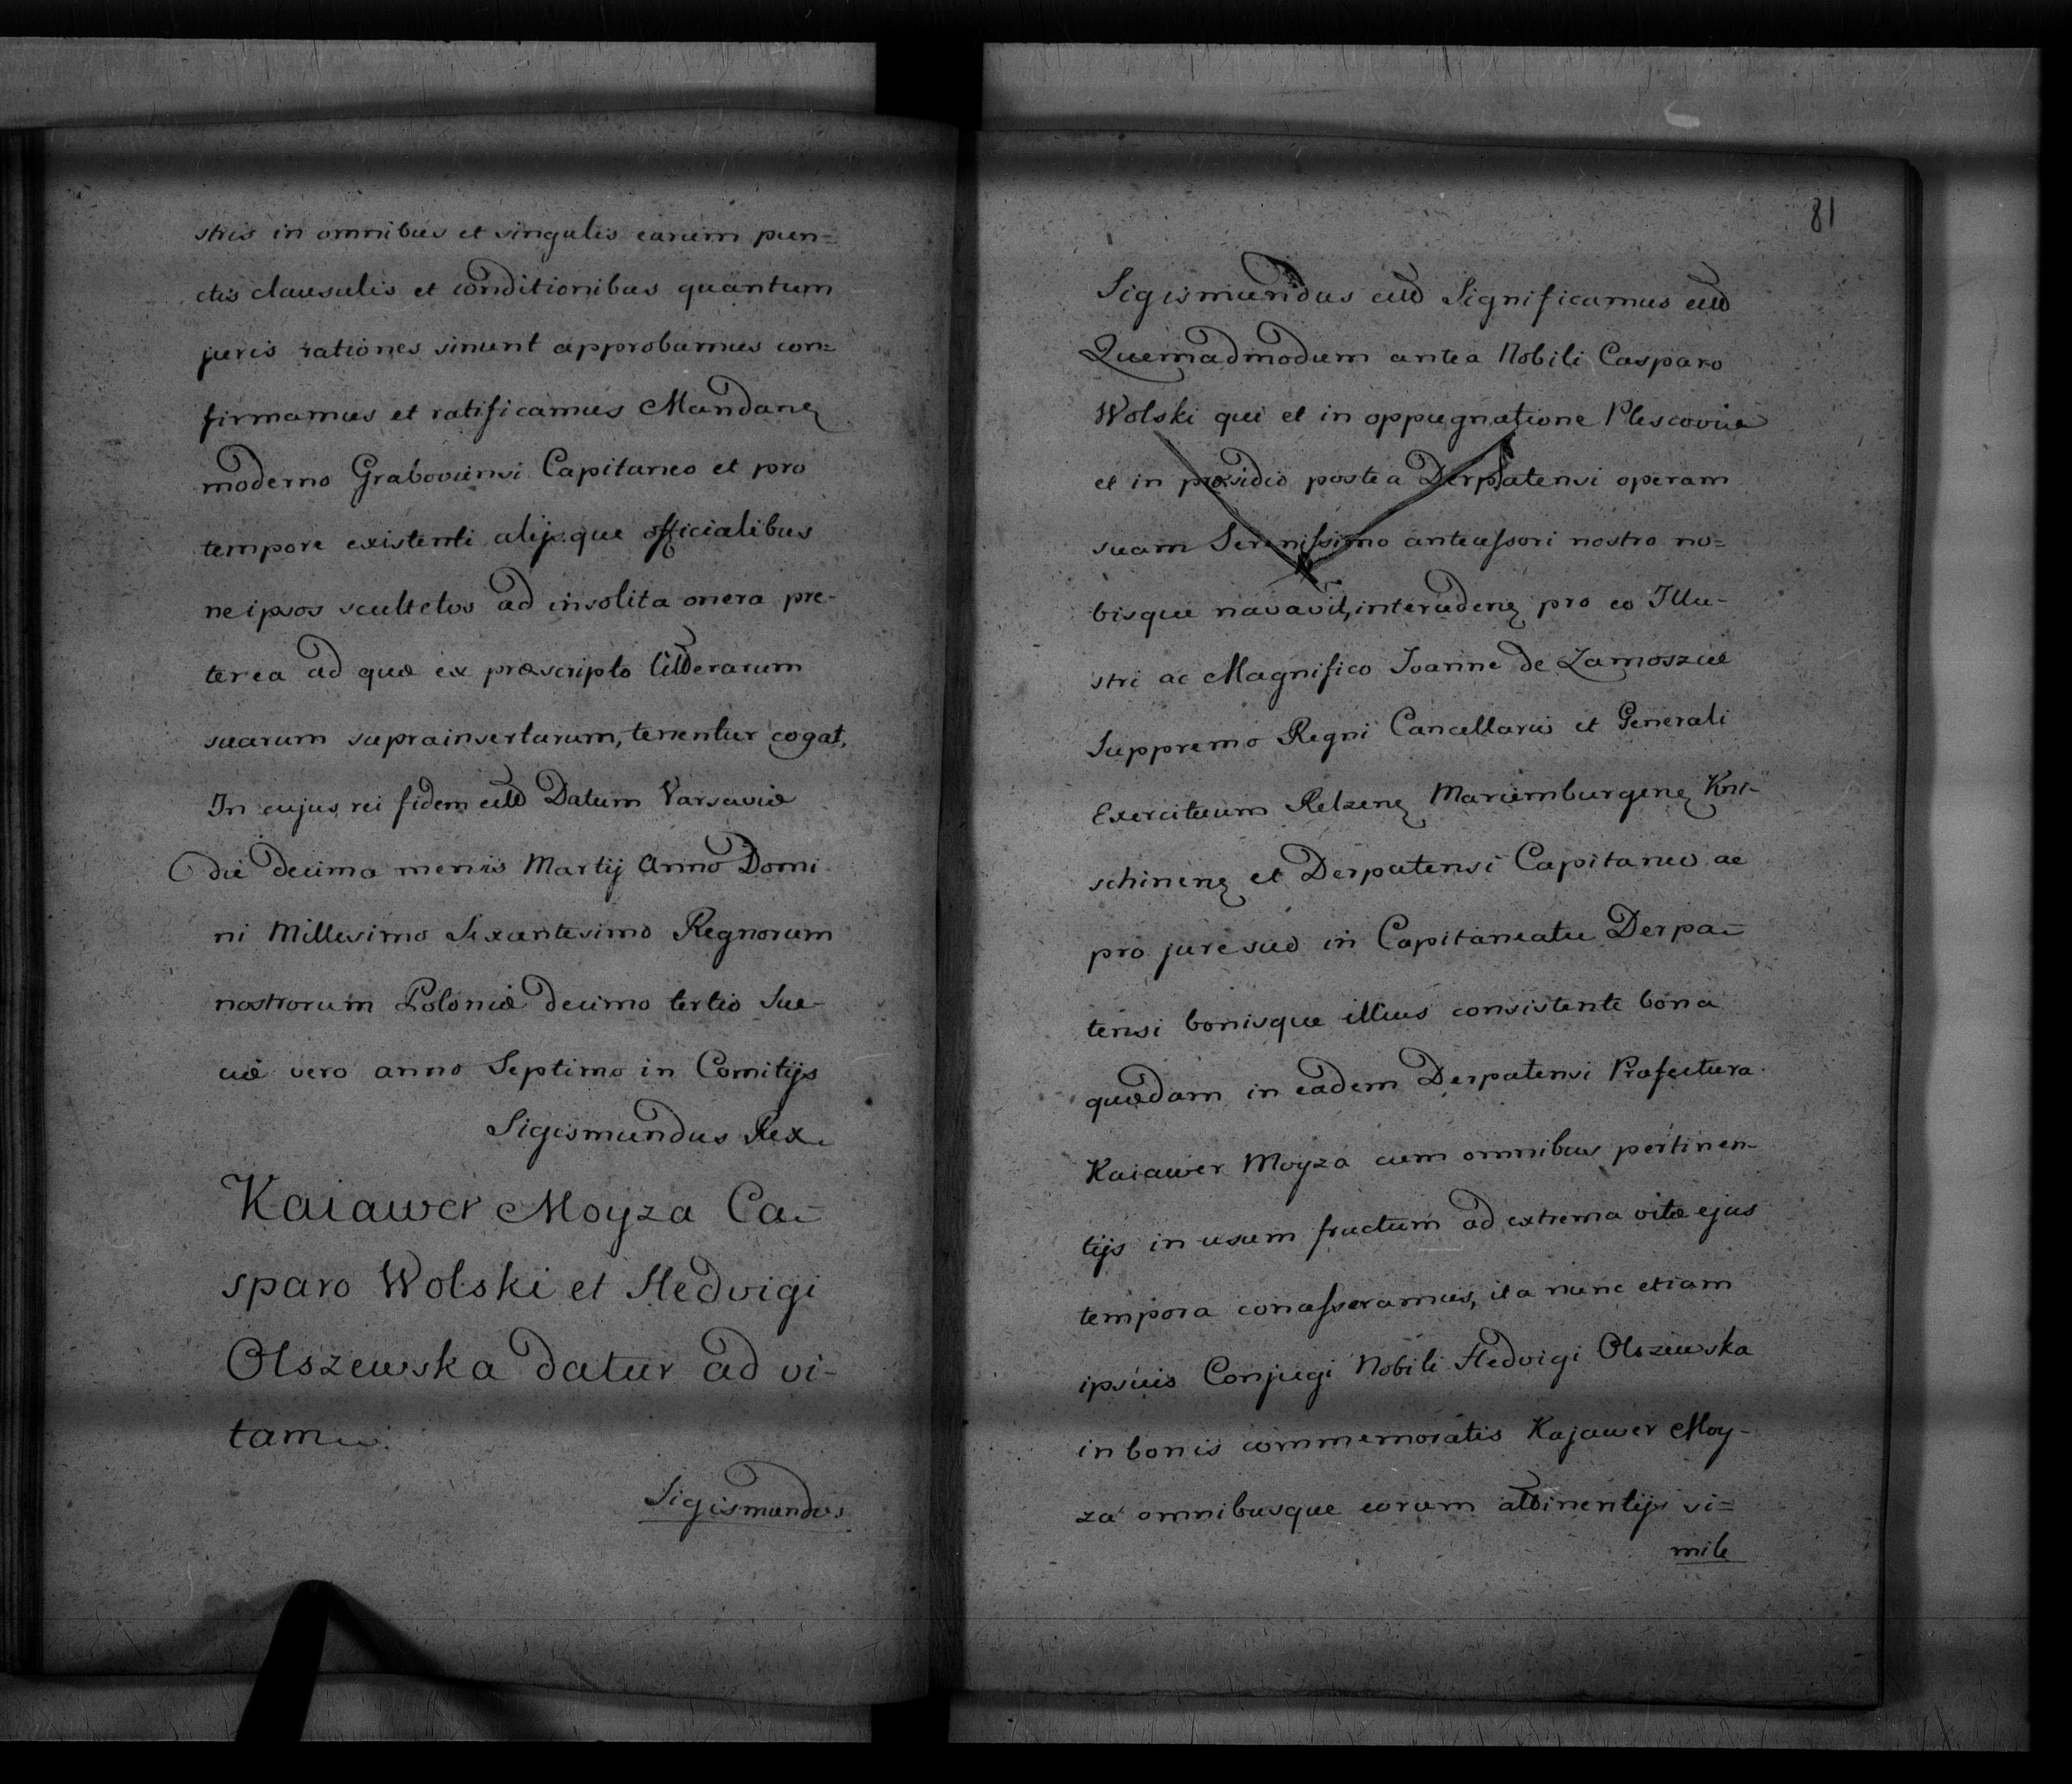 stris in omnibus et singulis earum pun=
ctis clausulis et conditionibus quantum
juris rationes sinunt approbamus con=
firmamus et ratificamus Mandanę
moderno Graboviensi Capitaneo et pro
tempore existenti alijsque officialibus
ne ipsos scultetos ad insolita onera pre-
terea ad quæ ex præscripto litterarum
suarum suprainsertarum, tenentur cogat,
In cujus rei fidem ettt Datum Varsaviæ
die decima mensis Martij Anno Domi
ni Millesimo Sexantesimo Regnorum
nostrorum Poloniæ decimo tertio Sue-
ciæ vero anno Septimo in Comitijs
Sigismundus Rex
Kaiawer Moyza Ca-
sparo Wolski et Hedvigi
Olszewska datur ad vi-
tam
Sigismundus
81
Sigismundus ettt Significamus ettt
Quemadmodum antea Nobili Casparo
Wolski qui et in oppugnatione Plescoviæ
et in præsidio postea Derpatensi operam
suam Serenissimo antecessori nostro no=
bisque navavit, intercedenę pro eo Illu-
stri ac Magnifico Ioanne de Zamoszcie
Suppremo Regni Cancellario et Generali
Exercituum Relzenę Mariemburgenę Kni-
schinenę et Derpatensi Capitaneo ac
pro jure suo in Capitaneatu Derpa-
tensi bonisque illius consistente bona
quædam in eadem Derpatensi Præfectura
Kaiawer Moyza cum omnibus pertinen-
tijs in usum fructum ad extrema vitæ ejus
tempora concesseramus, ita nunc etiam
ipsius Conjugi Nobili Hedvigi Olszewska
in bonis commemoratis Kajawer Moy-
za omnibusque eorum attinentijs si=
mile